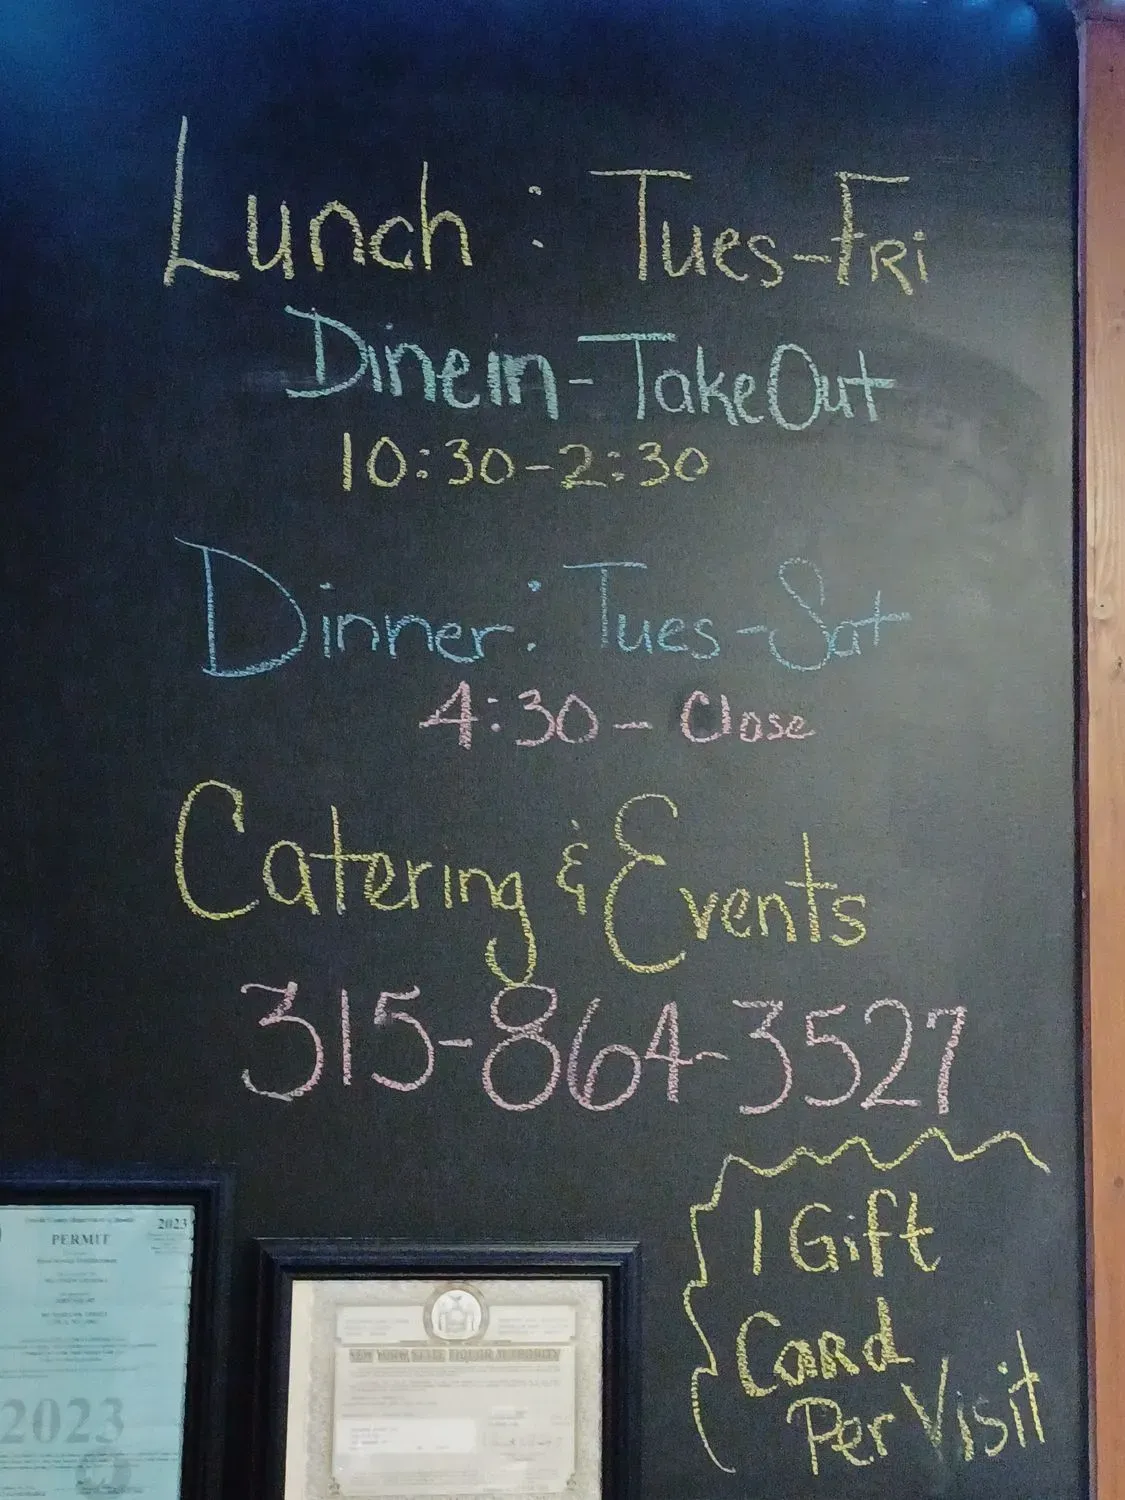 Lunch: Tues-Fri
Dinein-TakeOut
10:30-2:30
Dinner: Tues-Sat
4:30-Close
Catering & Events
315-864-3527
1 Gift
Card
Per Visit
2023
PERMIT
2023
NEW YORK STATE LIQUOR AUTHORITY